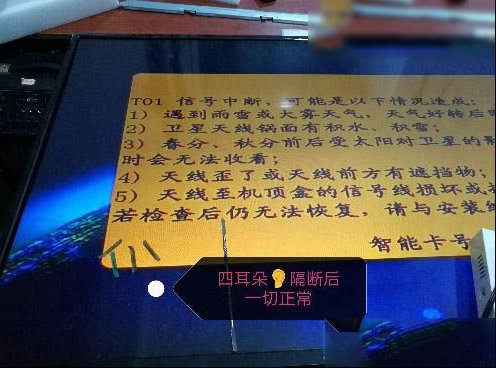 T01 信号中断，可能是以下情况造成：
1) 遇到雨雪或大雾天气，天气好转后
2) 卫星天线锅面有积水、积雪；
3) 春分、秋分前后受太阳对卫星的影
时会无法收看；
4) 天线歪了或天线前方有遮挡物；
5) 天线至机顶盒的信号线损坏或
若检查后仍无法恢复，请与安装
智能卡号
四耳朵👂隔断后
一切正常